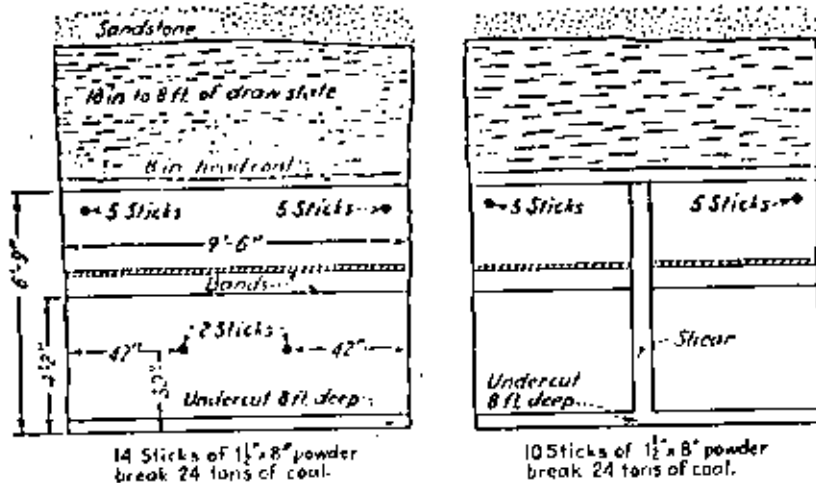 Sandstone
18 in to 8 ft. of draw slate
8 in headcoal
5 Sticks
5 Sticks
9'-6"
6'-9"
Bands
2 Sticks
42"
42"
Undercut 8 ft. deep
14 Sticks of 1½" x 8" powder
break 24 tons of coal.
5 Sticks
5 Sticks
Shear
Undercut
8 ft. deep
10 Sticks of 1½" x 8" powder
break 24 tons of coal.